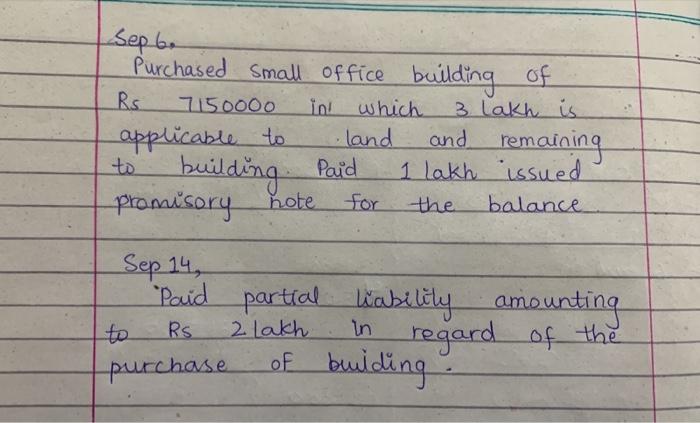 Sep 6.
Purchased small office building of
Rs 7150000 in which 3 lakh is
applicable to land and remaining
to building. Paid 1 lakh issued
promisory note for the balance
Sep 14,
Paid partial liability amounting
to Rs 2 lakh in regard of the
purchase of buiding.